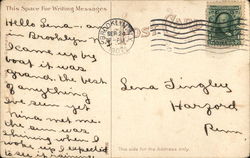 This Space For Writing Messages
POST CARD
BROOKLYN
SEP 24
Hello Lena - am
in Brooklyn N
I came up by
boat it was
grand. the best
of anything
I've seen yet
nina met me.
the sun was
shining when I
woke up I expected
to see it raining
Lena Tingley
Harford
Penn
This side for the Address only.